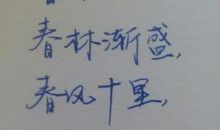 春林渐盛,
春风十里,